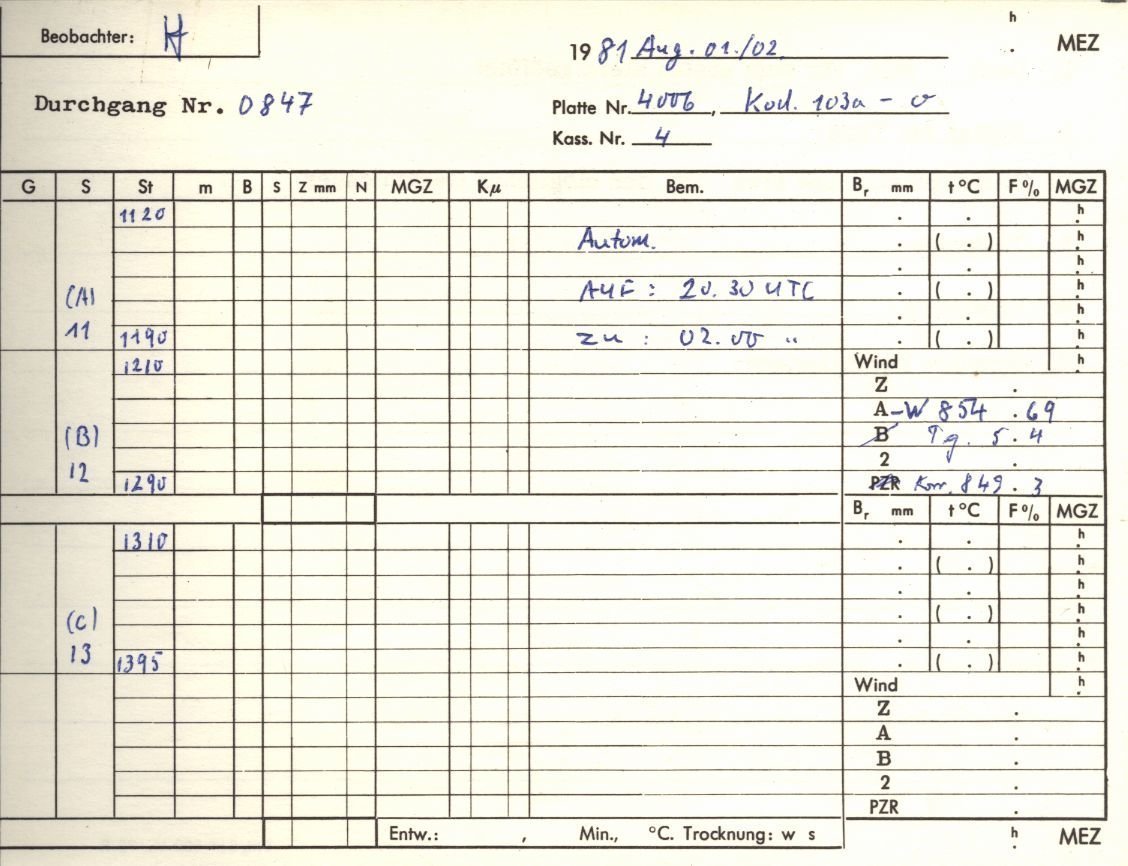 Beobachter:
h
. MEZ
19 81 Aug. 01./02.
Durchgang Nr. 0847
Platte Nr. 4006, Kod. 103a - O
Kass. Nr. 4
G S St m B S Z mm N MGZ Kμ Bem. Br mm t °C F% MGZ
1120 . . h
Autom. . ( . ) h
. . h
(A) AUF : 20.30 UTC . ( . ) h
. . h
11 1190 zu : 02.00 " . ( . ) h
1210 Wind h
Z .
A-W 854 .69
(B) B Tg. 5.4
12 2 .
1290 PZR Korr. 849.3
Br mm t °C F% MGZ
1310 . . h
. ( . ) h
. . h
(C) . ( . ) h
. . h
13 1395 . ( . ) h
Wind h
Z .
A .
B .
2 .
PZR .
Entw.: , Min., °C. Trocknung: w s h . MEZ